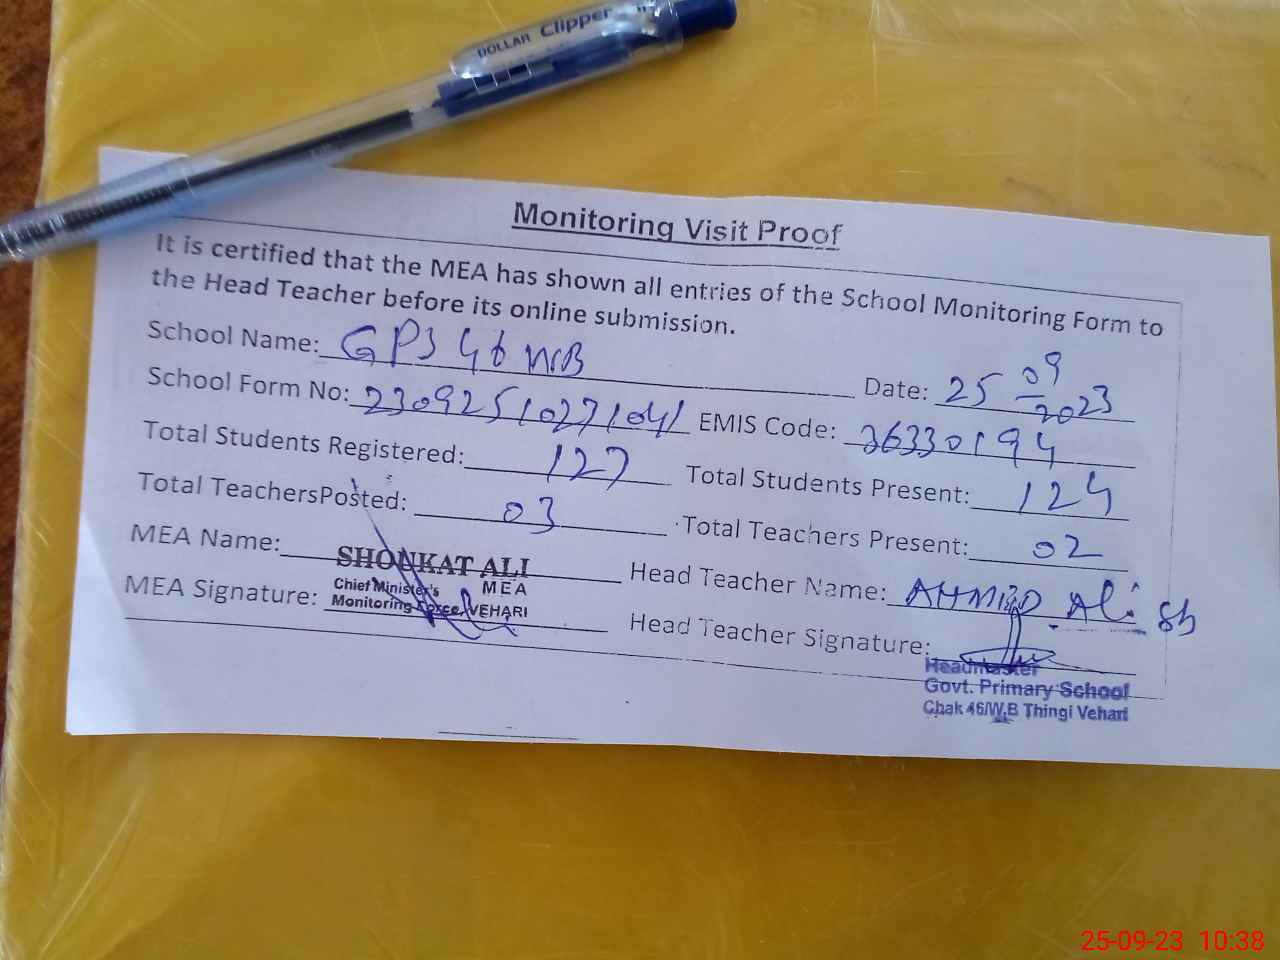 DOLLAR Clipper
Monitoring Visit Proof
It is certified that the MEA has shown all entries of the School Monitoring Form to
the Head Teacher before its online submission.
School Name: GPS 46 WB Date: 25 09 2023
School Form No: 23092510271041 EMIS Code: 36330194
Total Students Registered: 127 Total Students Present: 124
Total TeachersPosted: 03 Total Teachers Present: 02
MEA Name: SHOUKAT ALI Head Teacher Name: AHMED Ali Sb
Chief Minister's MEA
MEA Signature: Monitoring Force, VEHARI Head Teacher Signature:
Headmaster
Govt. Primary School
Chak 46/W.B Thingi Vehari
25-09-23 10:38